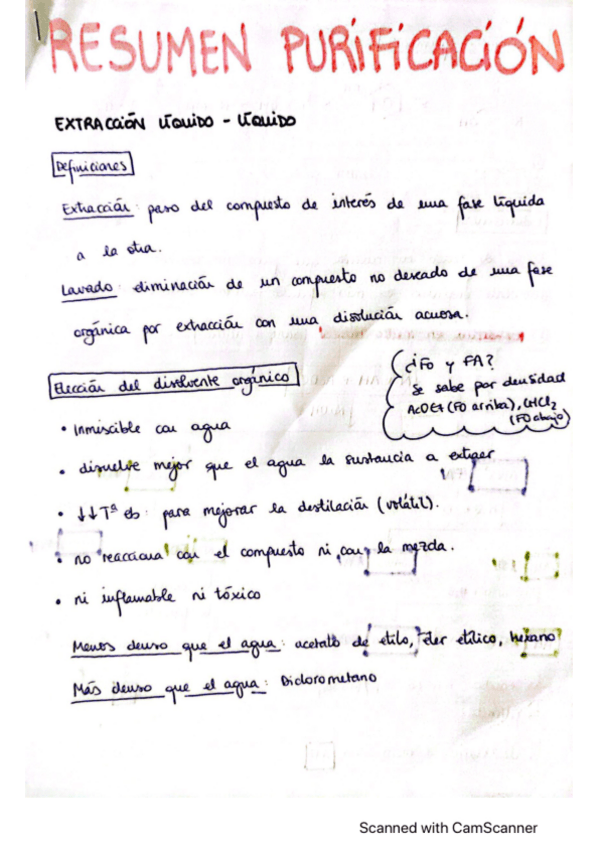 RESUMEN PURIFICACIÓN
EXTRACCIÓN LÍQUIDO - LÍQUIDO
Definiciones
Extracción: paso del compuesto de interés de una fase líquida
a la otra.
Lavado: eliminación de un compuesto no deseado de una fase
orgánica por extracción con una disolución acuosa.
Elección del disolvente orgánico
¿FO y FA?
Se sabe por densidad
AcOEt (FO arriba), CH2Cl2
(FO abajo)
• Inmiscible con agua
• disuelve mejor que el agua la sustancia a extraer
• ↓↓Tª eb: para mejorar la destilación (volátil).
• no reacciona con el compuesto ni con la mezcla.
• ni inflamable ni tóxico
Menos denso que el agua: acetato de etilo, éter etílico, hexano
Más denso que el agua: Diclorometano
Scanned with CamScanner